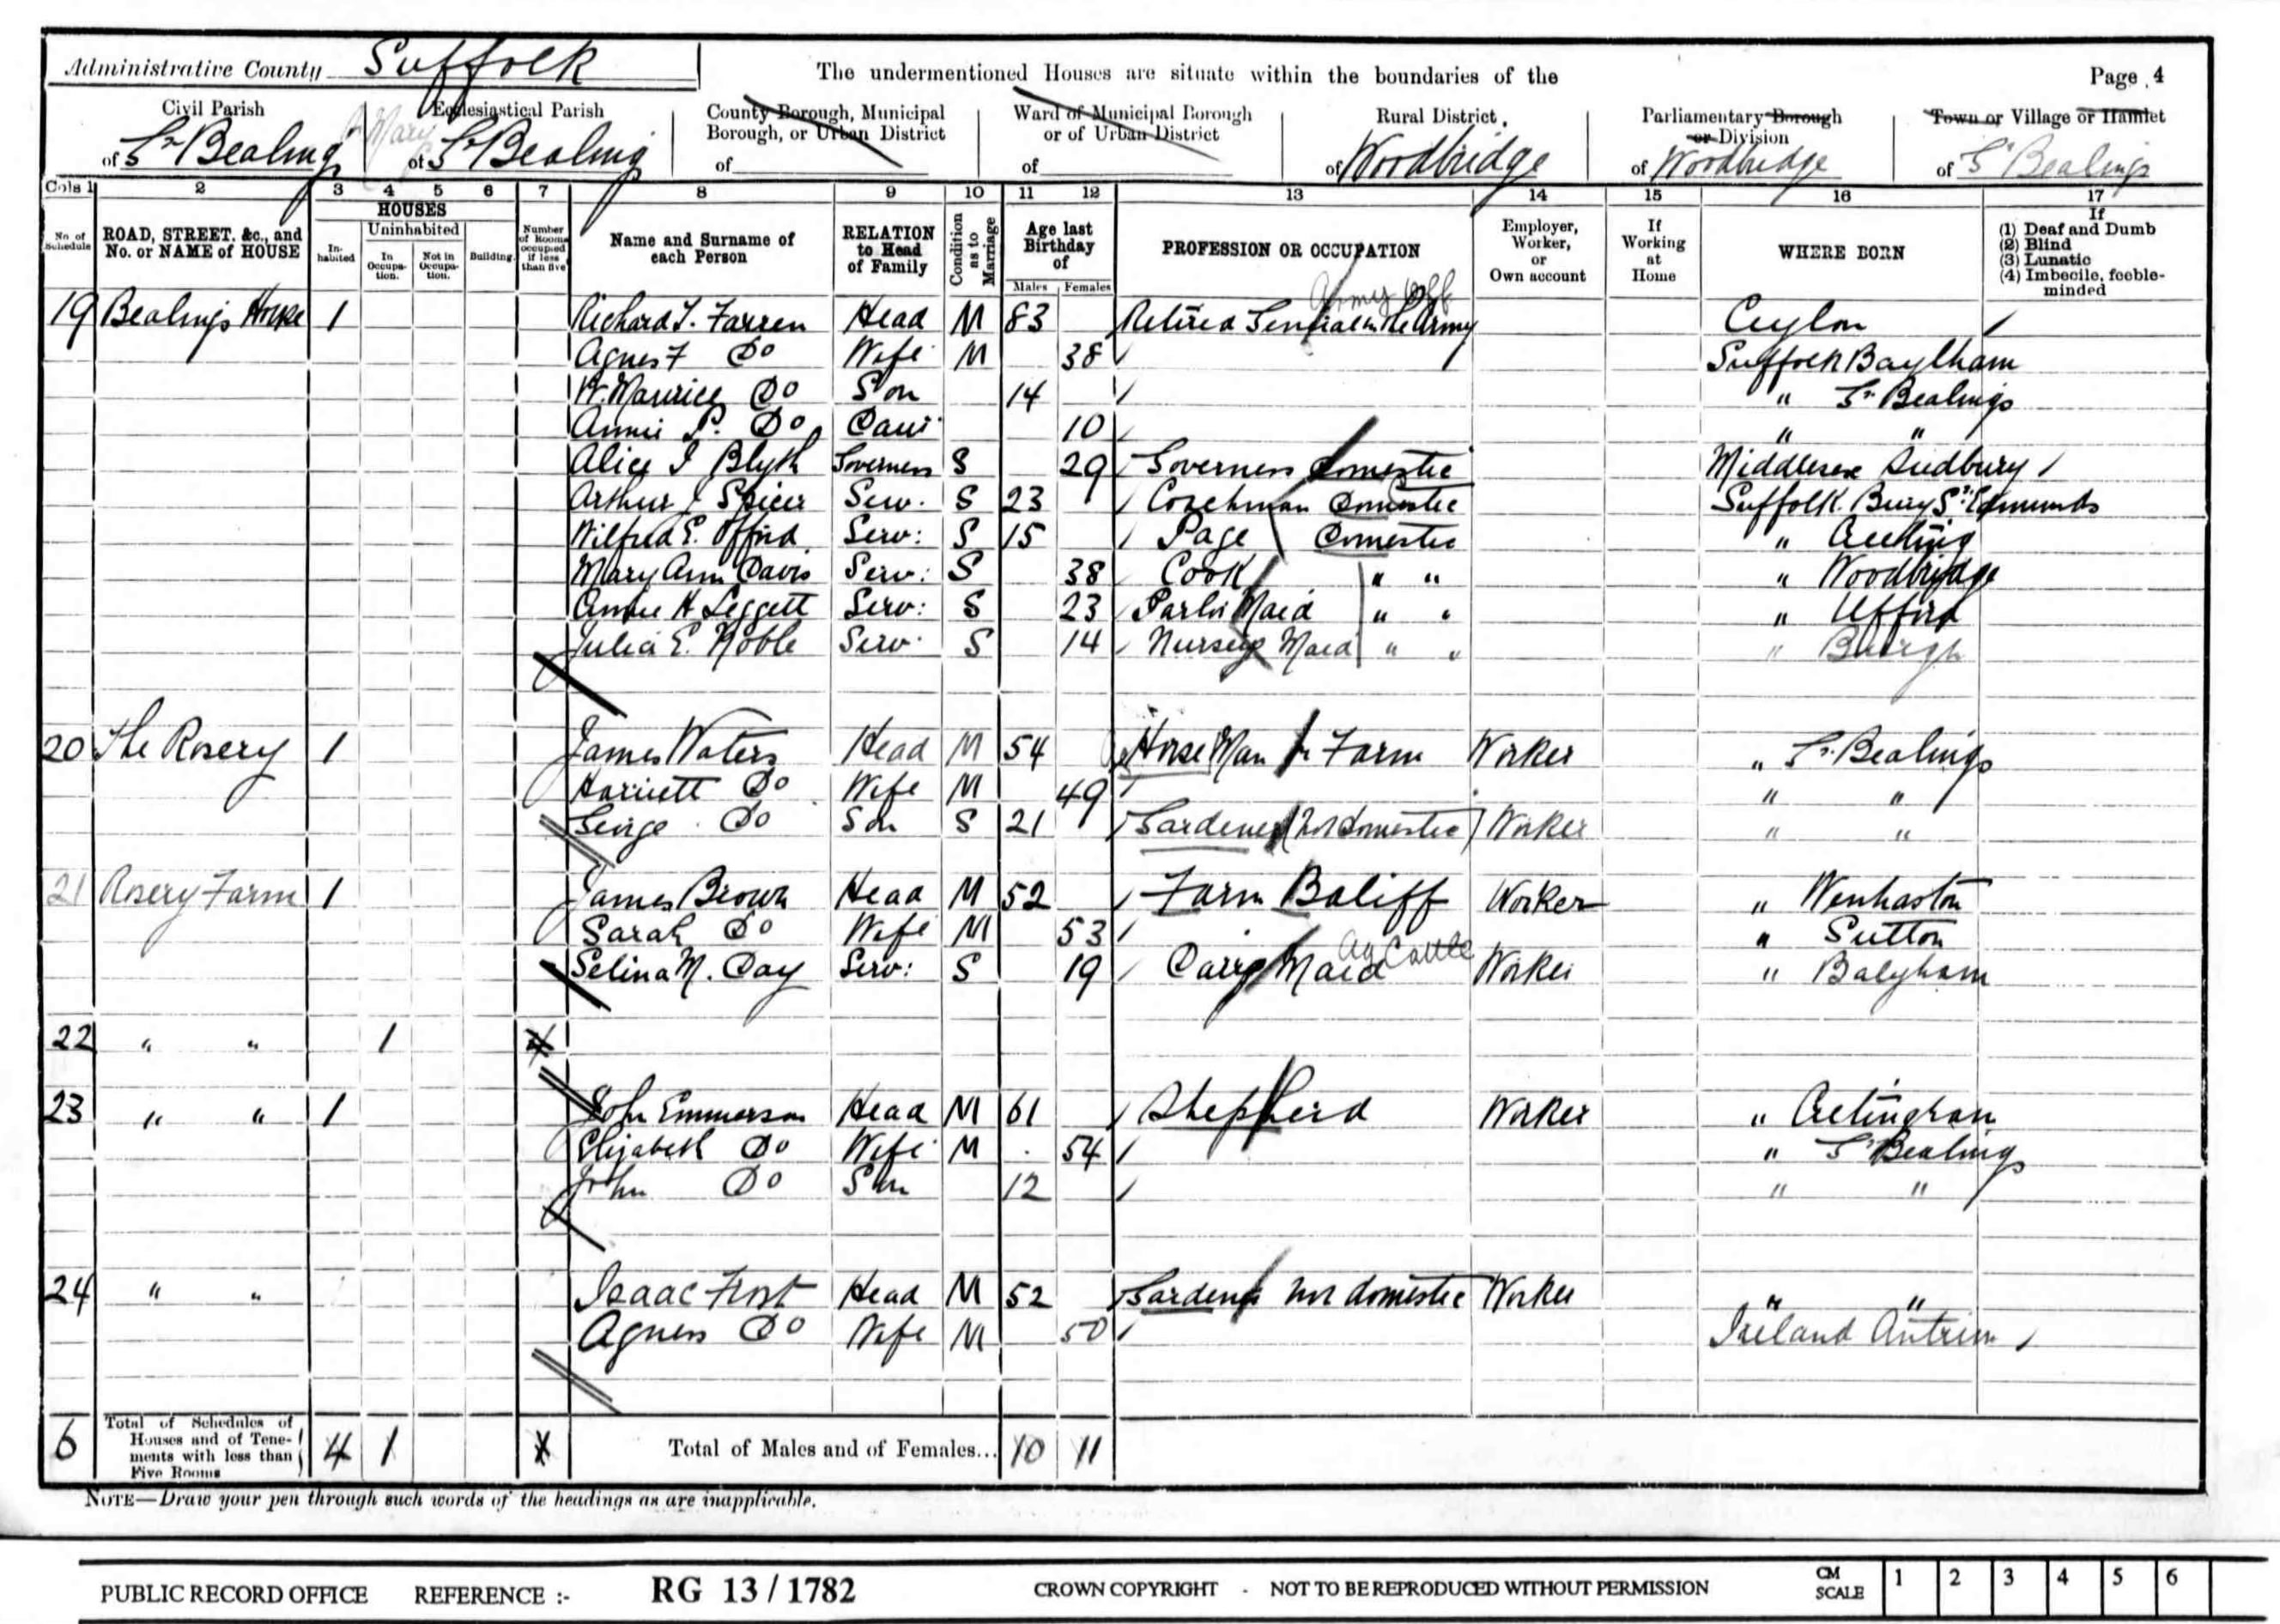 Administrative County Suffolk
The undermentioned Houses are situate within the boundaries of the
Page 4
Civil Parish
of Gt Bealings
Ecclesiastical Parish
St Mary
of Gt Bealings
County Borough, Municipal
Borough, or Urban District
of
Ward of Municipal Borough
or of Urban District
of
Rural District
of Woodbridge
Parliamentary Borough
or Division
of Woodbridge
Town or Village or Hamlet
of Gt Bealings
Cols 1 2 3 4 5 6 7 8 9 10 11 12 13 14 15 16 17
No of Schedule
ROAD, STREET, &c., and
No. or NAME of HOUSE
HOUSES
In-habited
Uninhabited
In Occupa-tion.
Not in Occupa-tion.
Building.
Number of Rooms occupied if less than five
Name and Surname of
each Person
RELATION
to Head
of Family
Condition as to Marriage
Age last
Birthday
of
Males Females
PROFESSION OR OCCUPATION
Employer,
Worker,
or
Own account
If
Working
at
Home
WHERE BORN
If
(1) Deaf and Dumb
(2) Blind
(3) Lunatic
(4) Imbecile, feeble-
minded
Army Off
19 Bealings House 1 Richard T. Farren Head M 83 Retired General in the Army Ceylon
Agnes F Do Wife M 38 Suffolk Baylham
W. Maurice Do Son 14 " Gt Bealings
Annie P. Do Daur 10 " "
Alice I Blyth Governess S 29 Governess Domestic Middlesex Sudbury
Arthur J Spicer Serv. S 23 Coachman Domestic Suffolk Bury St Edmunds
Wilfred E. Offord Serv: S 15 Page Domestic "
Mary Ann Davis Serv: S 38 Cook " " " Woodbridge
Annie H Leggett Serv: S 23 Parlor Maid " " " Ufford
Julia E. Noble Serv. S 14 Nursery Maid " " " Burgh
20 The Rosery 1 James Waters Head M 54 Horse Man on Farm Worker " Gt Bealings
Harriett Do Wife M 49 " "
George Do Son S 21 Gardener (Not domestic) Worker " "
21 Rosery Farm 1 James Brown Head M 52 Farm Baliff Worker " Wenhaston
Sarah Do Wife M 53 " Sutton
Ag Cattle
Selina M. Day Serv: S 19 Dairy Maid Worker " Balyham
22 " " 1
23 " " 1 John Emmerson Head M 61 Shepherd Worker " Cretingham
Elizabeth Do Wife M 54 " Gt Bealings
John Do Son 12 " "
24 " " Isaac Frost Head M 52 Gardener not domestic Worker " "
Agness Do Wife M 50 Ireland Antrim
6 Total of Schedules of
Houses and of Tene-
ments with less than
Five Rooms
4 1
Total of Males and of Females... 10 11
NOTE—Draw your pen through such words of the headings as are inapplicable.
PUBLIC RECORD OFFICE REFERENCE :- RG 13 / 1782 CROWN COPYRIGHT - NOT TO BE REPRODUCED WITHOUT PERMISSION CM SCALE 1 2 3 4 5 6